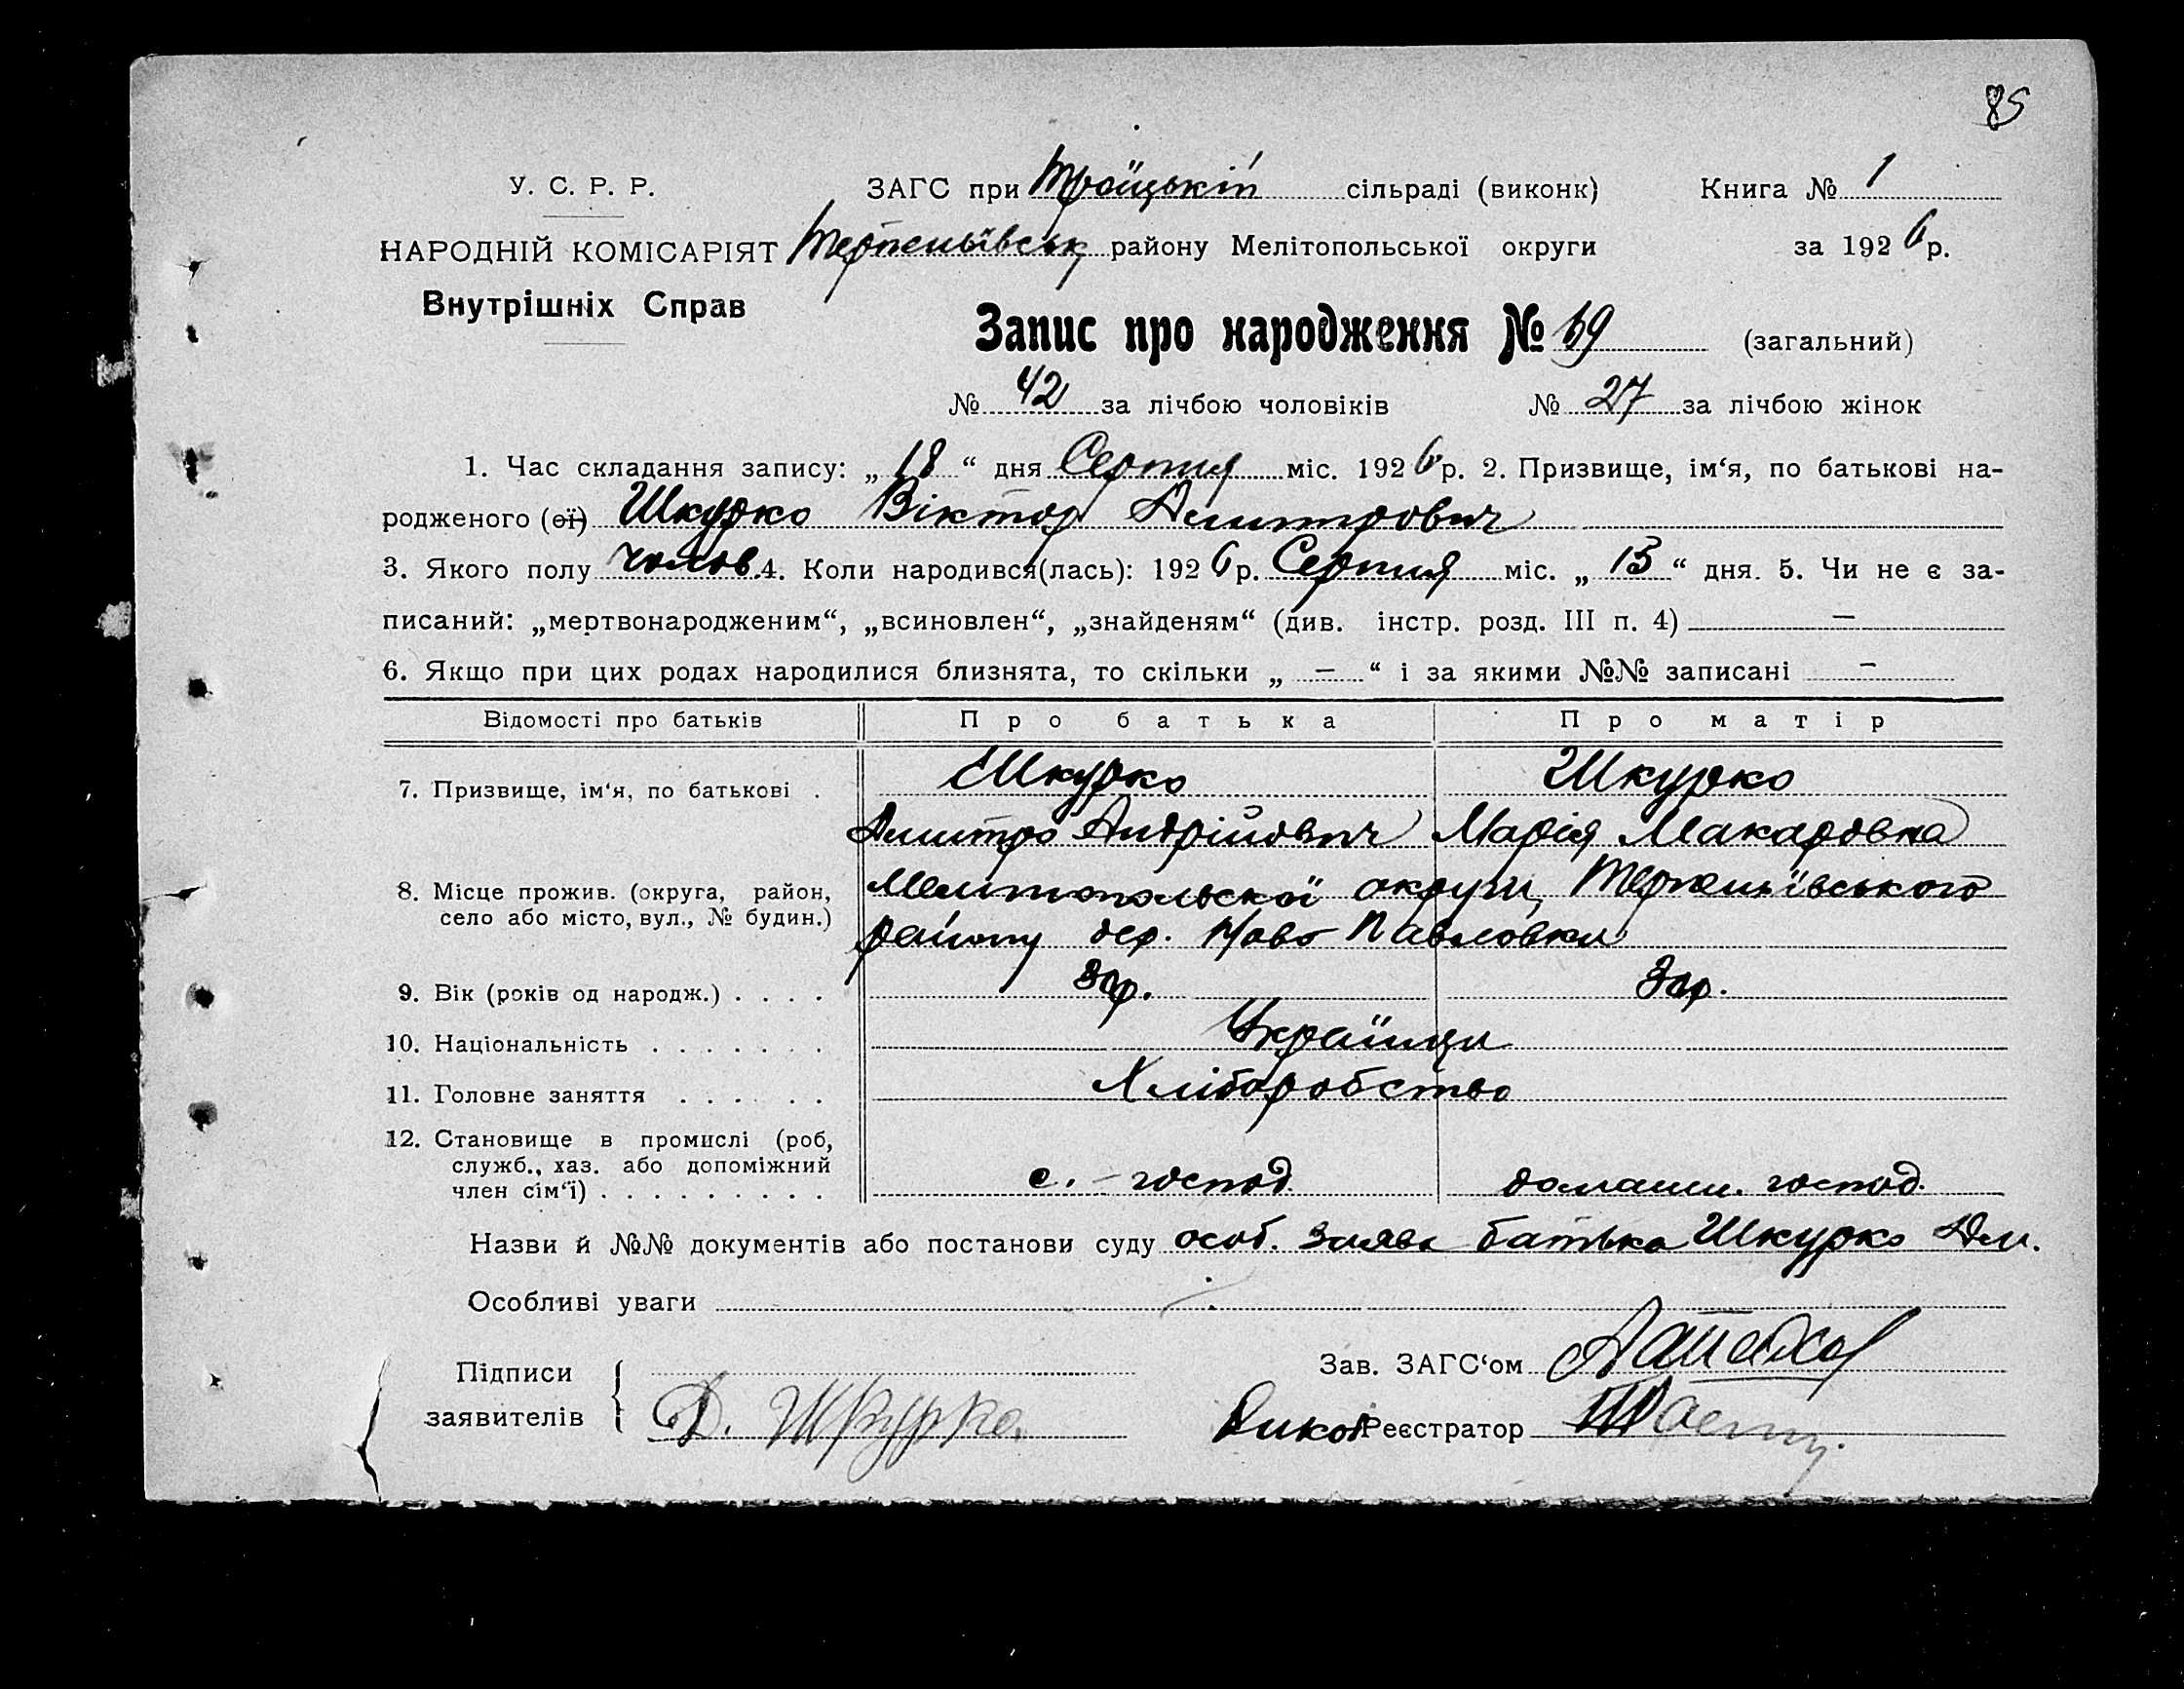 85
У. С. Р. Р.
ЗАГС при Троїцькій сільраді (виконк)
Книга № 1
НАРОДНІЙ КОМІСАРІЯТ
Терпеньївськ району Мелітопольської округи
за 1926 р.
Внутрішніх Справ
Запис про народження № 69 (загальний)
№ 42 за лічбою чоловіків № 27 за лічбою жінок
1. Час складання запису: „ 18 “ дня Серпня міс. 1926 р. 2. Призвище, ім‘я, по батькові на-
родженого (ої) Шкурко Віктор Дмитрович
3. Якого полу чолов. 4. Коли народився(лась): 1926 р. Серпня міс. „ 13 “ дня. 5. Чи не є за-
писаний: „мертвонародженим“, „всиновлен“, „знайденям“ (див. інстр. розд. III п. 4) —
6. Якщо при цих родах народилися близнята, то скільки „ — “ і за якими №№ записані —
Відомості про батьків Про батька Про матір
7. Призвище, ім‘я, по батькові . Шкурко Шкурко
Дмитро Андрійович Марія Макаровна
8. Місце прожив. (округа, район, Мелитопольскої округи, Терпеньївського
село або місто, вул., № будин.) району дер. Ново Павловки
9. Вік (років од народж.) . . . .
10. Національність . . . . . . . Українци
11. Головне заняття . . . . . . Хліборобство
12. Становище в промислі (роб,
служб., хаз. або допоміжний
член сім‘ї) . . . . . . . . . с. - господ. домашн. господ.
Назви й №№ документів або постанови суду особ. заява батька Шкурко Дм.
Особливі уваги
Підписи
заявителів Д. Шкурко.
Зав. ЗАГС‘ом
Реєстратор